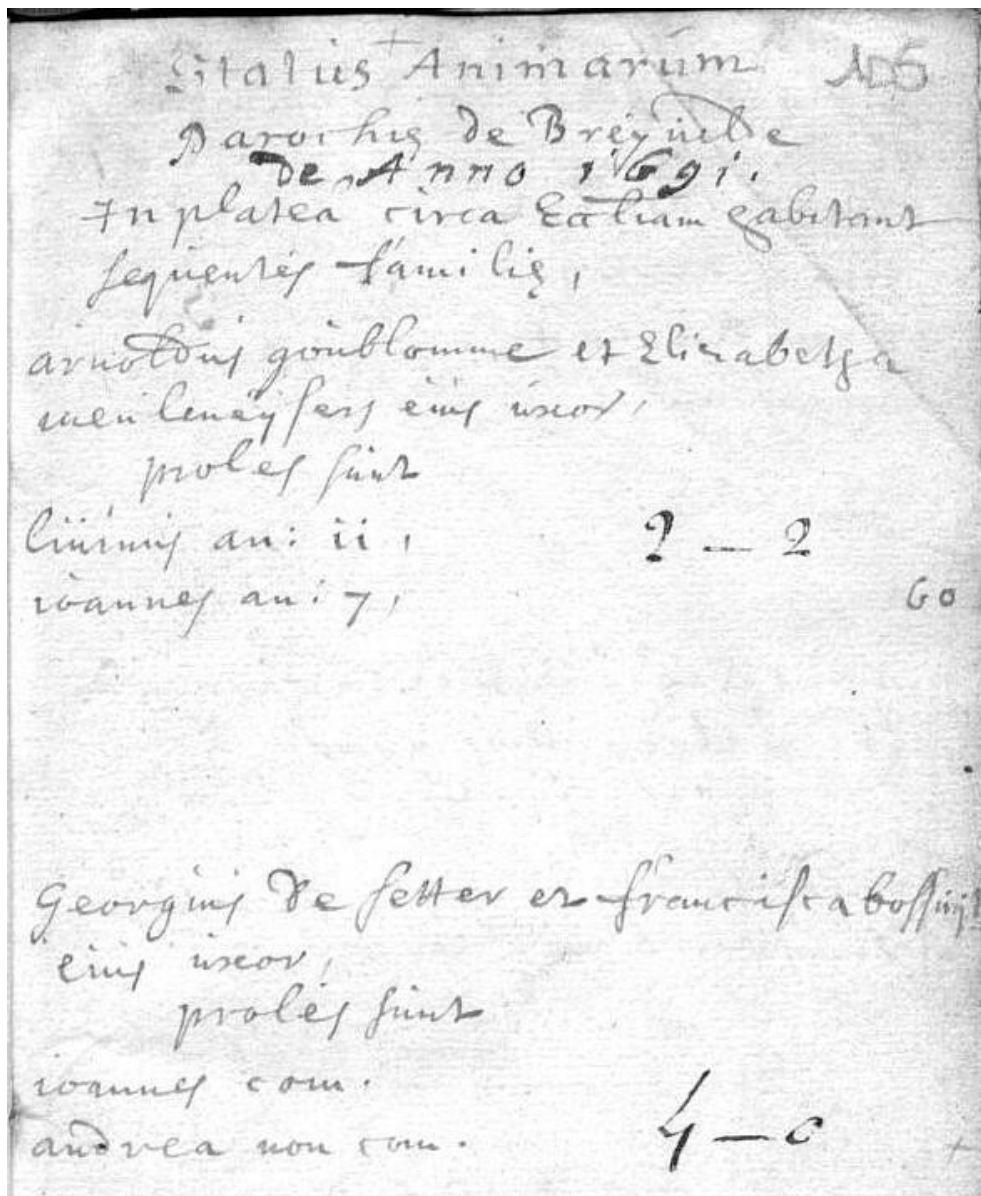 Status Animarum
106
Parochię de Breÿvelde
de Anno 1691.
In platea circa Eccliam habitant
sequentes familię,
arnoldus goublomme et Elizabetha
meuleneÿsers eius uxor,
proles sunt
livinus an: ii,
2 — 2
ioannes an: 7,
60
Georgius De setter et francisca bossuijt
eius uxor,
proles sunt
ioannes com.
andrea non com.
4 — 0